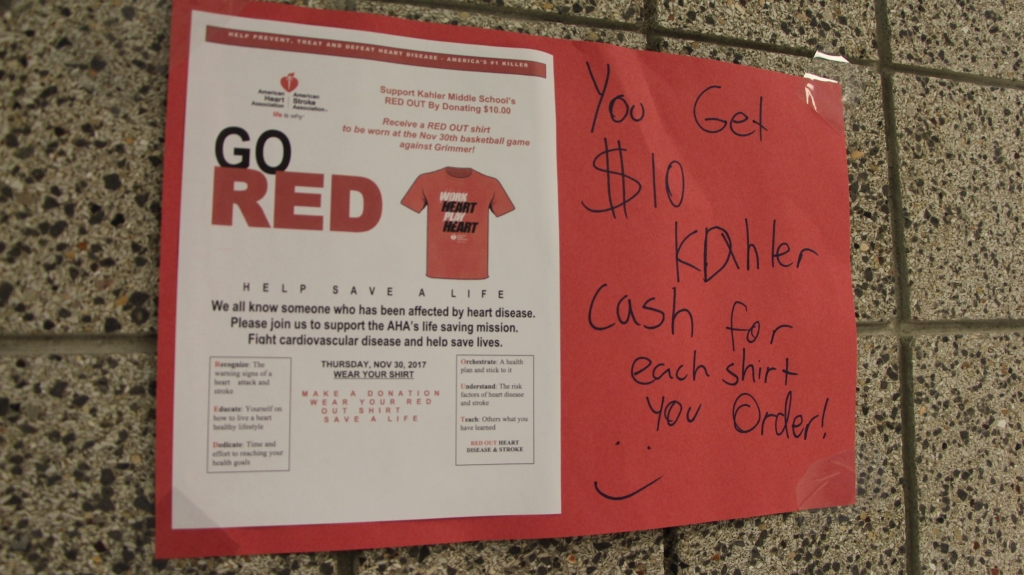 HELP PREVENT, TREAT AND DEFEAT HEART DISEASE - AMERICA'S #1 KILLER
American Heart Association
American Stroke Association
life is why
Support Kahler Middle School's
RED OUT By Donating $10.00
Receive a RED OUT shirt
to be worn at the Nov 30th basketball game
against Grimmer!
GO
RED
WORK
HEART
PLAY
HEART
HELP SAVE A LIFE
We all know someone who has been affected by heart disease.
Please join us to support the AHA's life saving mission.
Fight cardiovascular disease and help save lives.
Recognize: The
warning signs of a
heart attack and
stroke
Educate: Yourself on
how to live a heart
healthy lifestyle
Dedicate: Time and
effort to reaching your
health goals
THURSDAY, NOV 30, 2017
WEAR YOUR SHIRT
MAKE A DONATION
WEAR YOUR RED
OUT SHIRT
SAVE A LIFE
Orchestrate: A health
plan and stick to it
Understand: The risk
factors of heart disease
and stroke
Teach: Others what you
have learned
RED OUT HEART
DISEASE & STROKE
You Get
$10
KAhler
Cash for
each shirt
you Order!